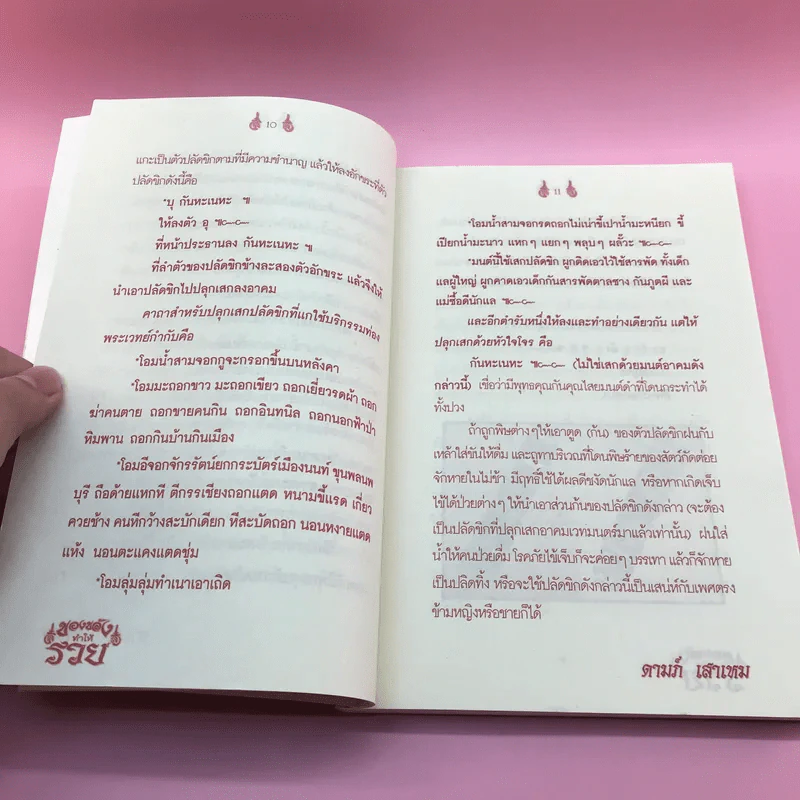 10
แกะเป็นตัวปลัดขิกตามที่มีความชำนาญ แล้วให้ลงอักขระที่ตัว
ปลัดขิกดังนี้คือ
"บุ กันหะเนหะ ๚
ให้ลงตัว อุ ๚ะ๛
ที่หน้าประธานลง กันหะเนหะ ๚
ที่ลำตัวของปลัดขิกข้างละสองตัวอักขระ แล้วจึงให้
นำเอาปลัดขิกไปปลุกเสกลงอาคม
คาถาสำหรับปลุกเสกปลัดขิกที่แกใช้บริกรรมท่อง
พระเวทย์กำกับคือ
"โอมน้ำสามจอกกูจะกรอกขึ้นบนหลังคา
"โอมมะถอกขาว มะถอกเขียว ถอกเยี่ยวรดผ้า ถอก
ฆ่าคนตาย ถอกขายคนกิน ถอกอินทนิล ถอกนอกฟ้าป่า
หิมพาน ถอกกินบ้านกินเมือง
"โอมอีจอกจักรรัตน์ยกกระบัตร์เมืองนนท์ ขุนพลนพ
บุรี ถือด้ายแหกหี ตีกรรเชียงถอกแตด หนามขี้แรด เกี่ยว
ควยช้าง คนหีกว้างสะบักเดียก หีสะบัดถอก นอนหงายแตด
แห้ง นอนตะแคงแตดชุ่ม
"โอมลุ่มลุ่มทำเนาเอาเถิด
ของขลัง
ทำให้
รวย
11
"โอมน้ำสามจอกรดถอกไม่เน่าขี้เปาน้ำมะหนียก ขี้
เปียกน้ำมะนาว แหกๆ แยกๆ พลุบๆ ผลั๊วะ ๚ะ๛
"มนต์นี้ใช้เสกปลัดขิก ผูกติดเอวไว้ใช้สารพัด ทั้งเด็ก
แลผู้ใหญ่ ผูกคาดเอวเด็กกันสารพัดตาลซาง กันภูตผี และ
แม่ซื้อดีนักแล ๚ะ๛
และอีกตำรับหนึ่งให้ลงและทำอย่างเดียวกัน แต่ให้
ปลุกเสกด้วยหัวใจโจร คือ
กันหะเนหะ ๚ะ๛ (ไม่ใช่เสกด้วยมนต์อาคมดัง
กล่าวนี้) เชื่อว่ามีพุทธคุณกันคุณไสยมนต์ดำที่โดนกระทำได้
ทั้งปวง
ถ้าถูกพิษต่างๆให้เอาตูด (ก้น) ของตัวปลัดขิกฝนกับ
เหล้าใส่ขันให้ดื่ม และถูทาบริเวณที่โดนพิษร้ายของสัตว์กัดต่อย
จักหายในไม่ช้า มีฤทธิ์ใช้ได้ผลดีชงัดนักแล หรือหากเกิดเจ็บ
ไข้ได้ป่วยต่างๆ ให้นำเอาส่วนก้นของปลัดขิกดังกล่าว (จะต้อง
เป็นปลัดขิกที่ปลุกเสกอาคมเวทมนตร์มาแล้วเท่านั้น) ฝนใส่
น้ำให้คนป่วยดื่ม โรคภัยไข้เจ็บก็จะค่อยๆ บรรเทา แล้วก็จักหาย
เป็นปลิดทิ้ง หรือจะใช้ปลัดขิกดังกล่าวนี้เป็นเสน่ห์กับเพศตรง
ข้ามหญิงหรือชายก็ได้
ดามภ์ เสาเหม